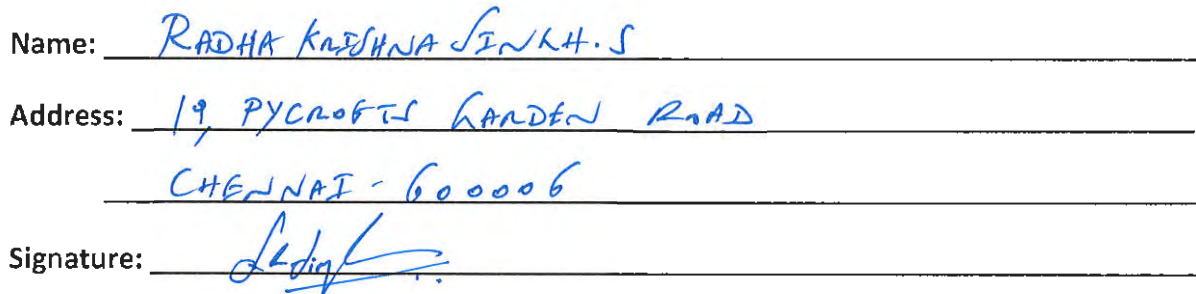 Name: RADHA KRISHNA SINGH.S
Address: 19, PYCROFTS GARDEN ROAD
CHENNAI - 600006
Signature: